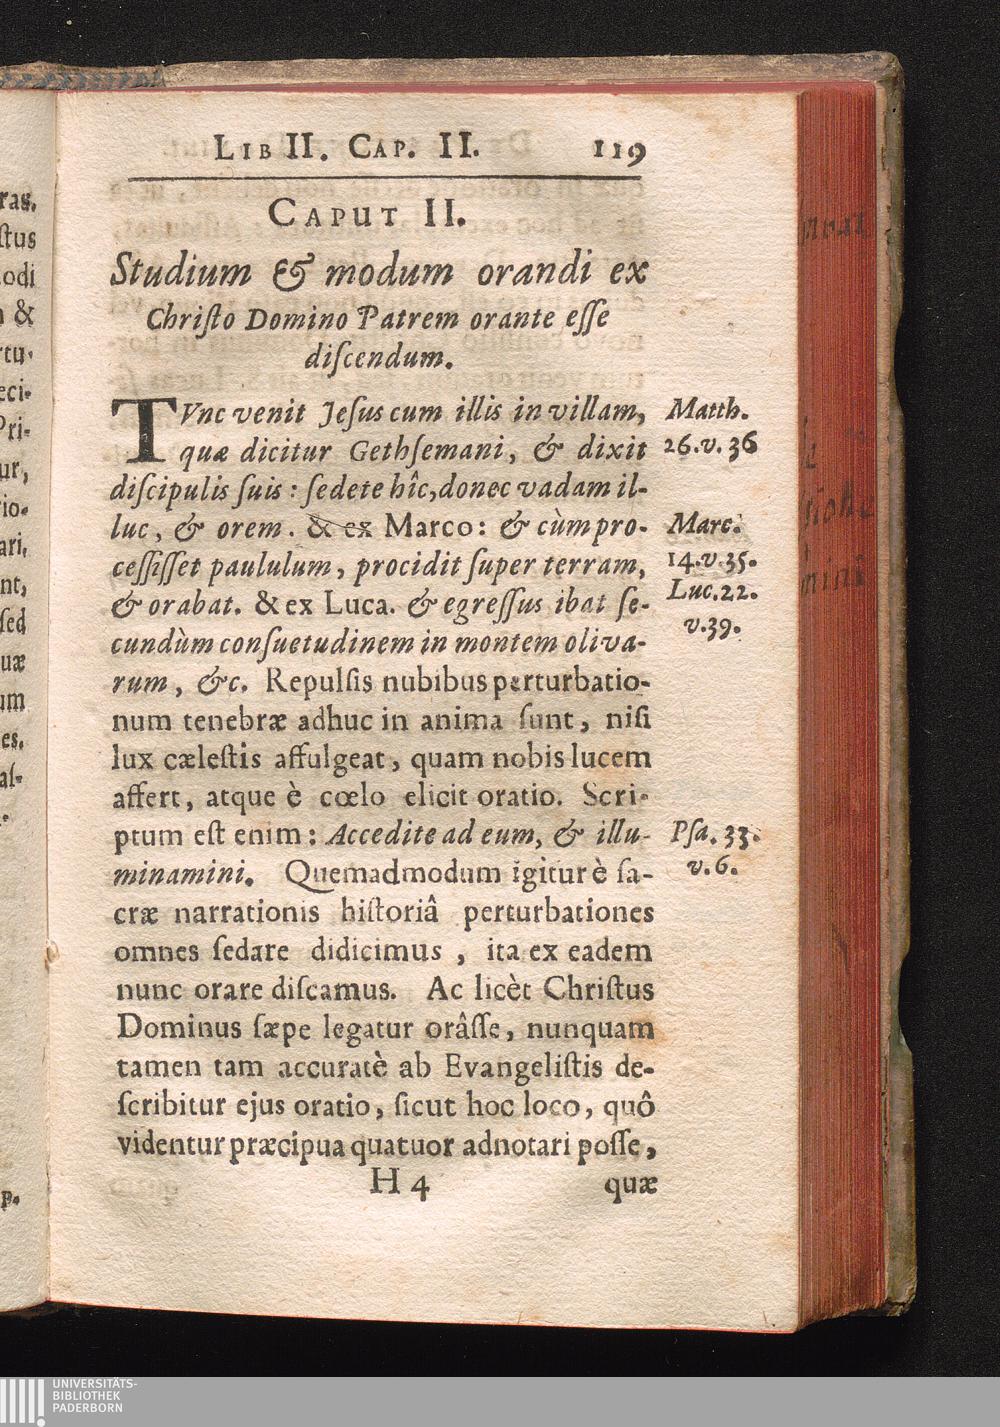 LIB II. CAP. II. 119
CAPUT II.
Studium & modum orandi ex
Chriſto Domino Patrem orante eſſe
diſcendum.
TVnc venit Jeſus cum illis in villam,
quæ dicitur Gethſemani, & dixit
diſcipulis ſuis: ſedete hîc, donec vadam il-
luc, & orem. & ex Marco: & cùm pro-
ceſſiſſet paululum, procidit ſuper terram,
& orabat. & ex Luca. & egreſſus ibat ſe-
cundùm conſuetudinem in montem oliva-
rum, &c. Repulſis nubibus perturbatio-
num tenebræ adhuc in anima ſunt, niſi
lux cæleſtis affulgeat, quam nobis lucem
affert, atque è cœlo elicit oratio. Scri-
ptum eſt enim: Accedite ad eum, & illu-
minamini. Quemadmodum igitur è ſa-
cræ narrationis hiſtoriâ perturbationes
omnes ſedare didicimus, ita ex eadem
nunc orare diſcamus. Ac licèt Chriſtus
Dominus ſæpe legatur orâſſe, nunquam
tamen tam accuratè ab Evangeliſtis de-
ſcribitur ejus oratio, ſicut hoc loco, quô
videntur præcipua quatuor adnotari poſſe,
H 4 quæ
Matth.
26.v.36
Marc.
14.v.35.
Luc.22.
v.39.
Pſa. 33.
v.6.
ras.
ſtus
odi
& 
rtu-
eci-
Pri-
ur,
io-
ari,
nt,
ſed
uæ
um
es.
aſ-
p.
UNIVERSITÄTS-
BIBLIOTHEK
PADERBORN